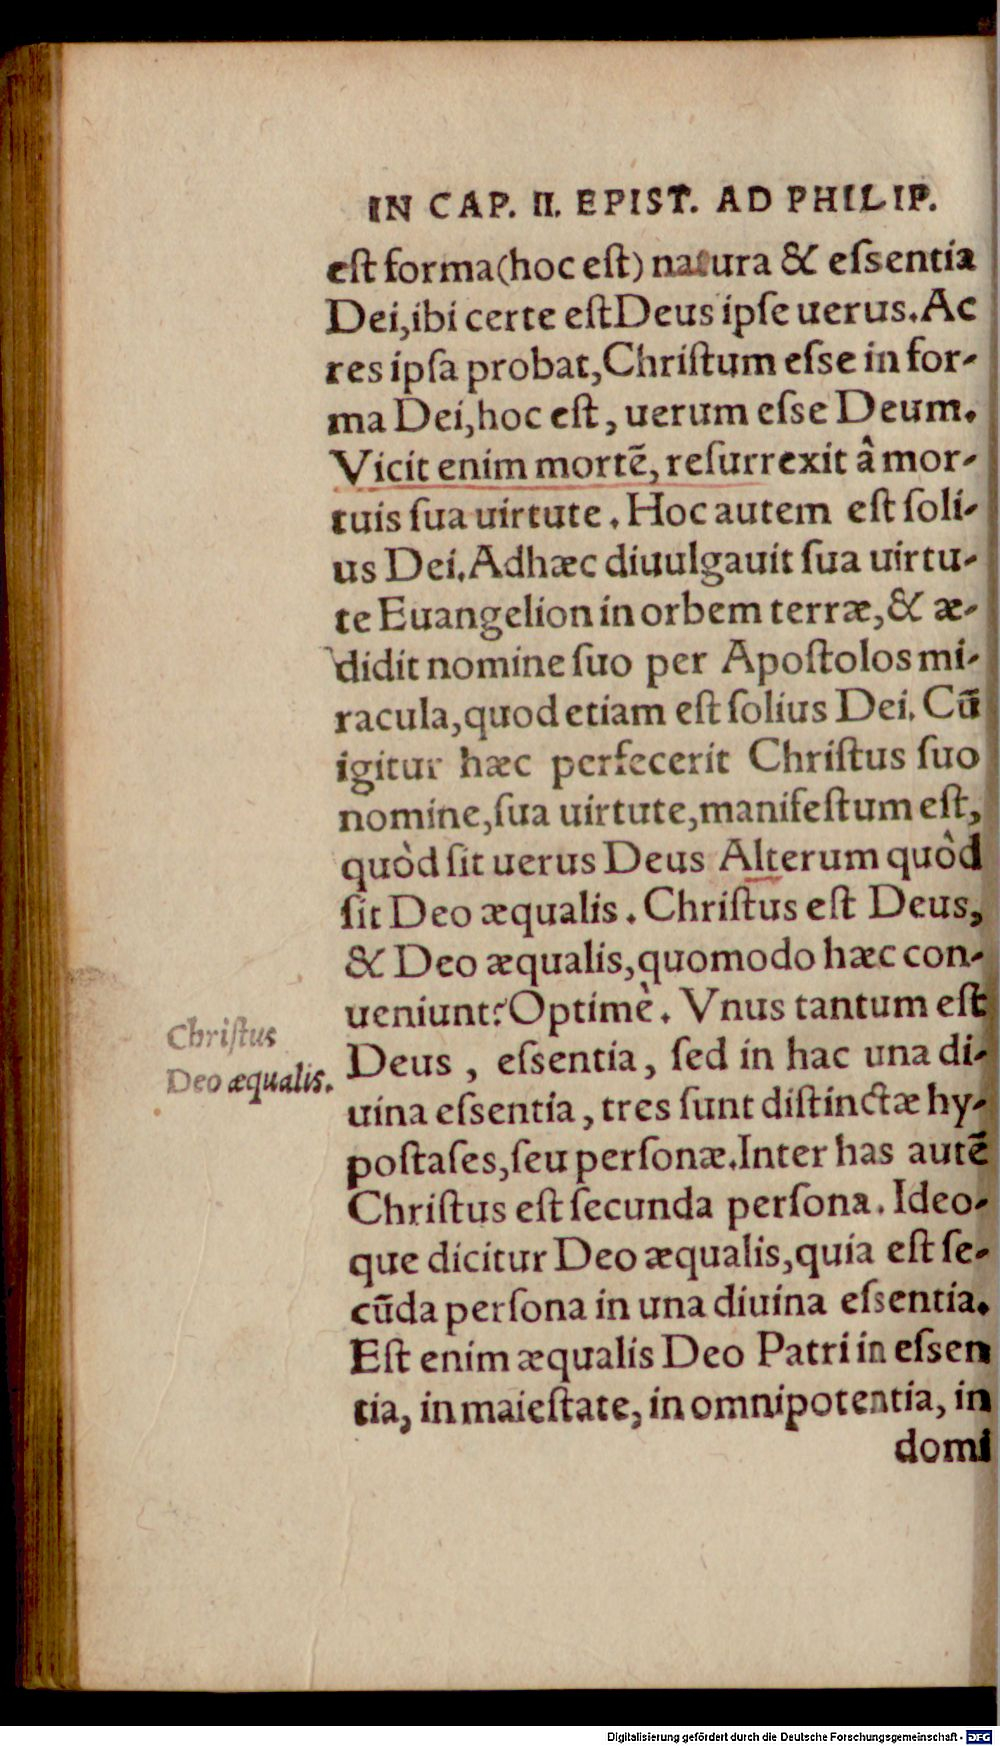 IN CAP. II. EPIST. AD PHILIP.
eſt forma (hoc eſt) natura & eſsentia
Dei, ibi certe eſt Deus ipſe uerus. Ac
res ipſa probat, Chriſtum eſse in for-
ma Dei, hoc eſt, uerum eſse Deum.
Vicit enim mortē, reſurrexit â mor-
tuis ſua uirtute. Hoc autem eſt ſoli-
us Dei. Adhæc diuulgauit ſua uirtu-
te Euangelion in orbem terræ, & æ-
didit nomine ſuo per Apoſtolos mi-
racula, quod etiam eſt ſolius Dei. Cū
igitur hæc perfecerit Chriſtus ſuo
nomine, ſua uirtute, manifeſtum eſt,
quòd ſit uerus Deus Alterum quòd
ſit Deo æqualis. Chriſtus eſt Deus,
& Deo æqualis, quomodo hæc con-
ueniunt? Optimè. Vnus tantum eſt
Chriſtus
Deo æqualis.
Deus, eſsentia, ſed in hac una di-
uina eſsentia, tres ſunt diſtinctæ hy-
poſtaſes, ſeu perſonæ. Inter has autē
Chriſtus eſt ſecunda perſona. Ideo-
que dicitur Deo æqualis, quia eſt ſe-
cūda perſona in una diuina eſsentia.
Eſt enim æqualis Deo Patri in eſsen
tia, in maieſtate, in omnipotentia, in
domi
Digitalisierung gefördert durch die Deutsche Forschungsgemeinschaft - DFG